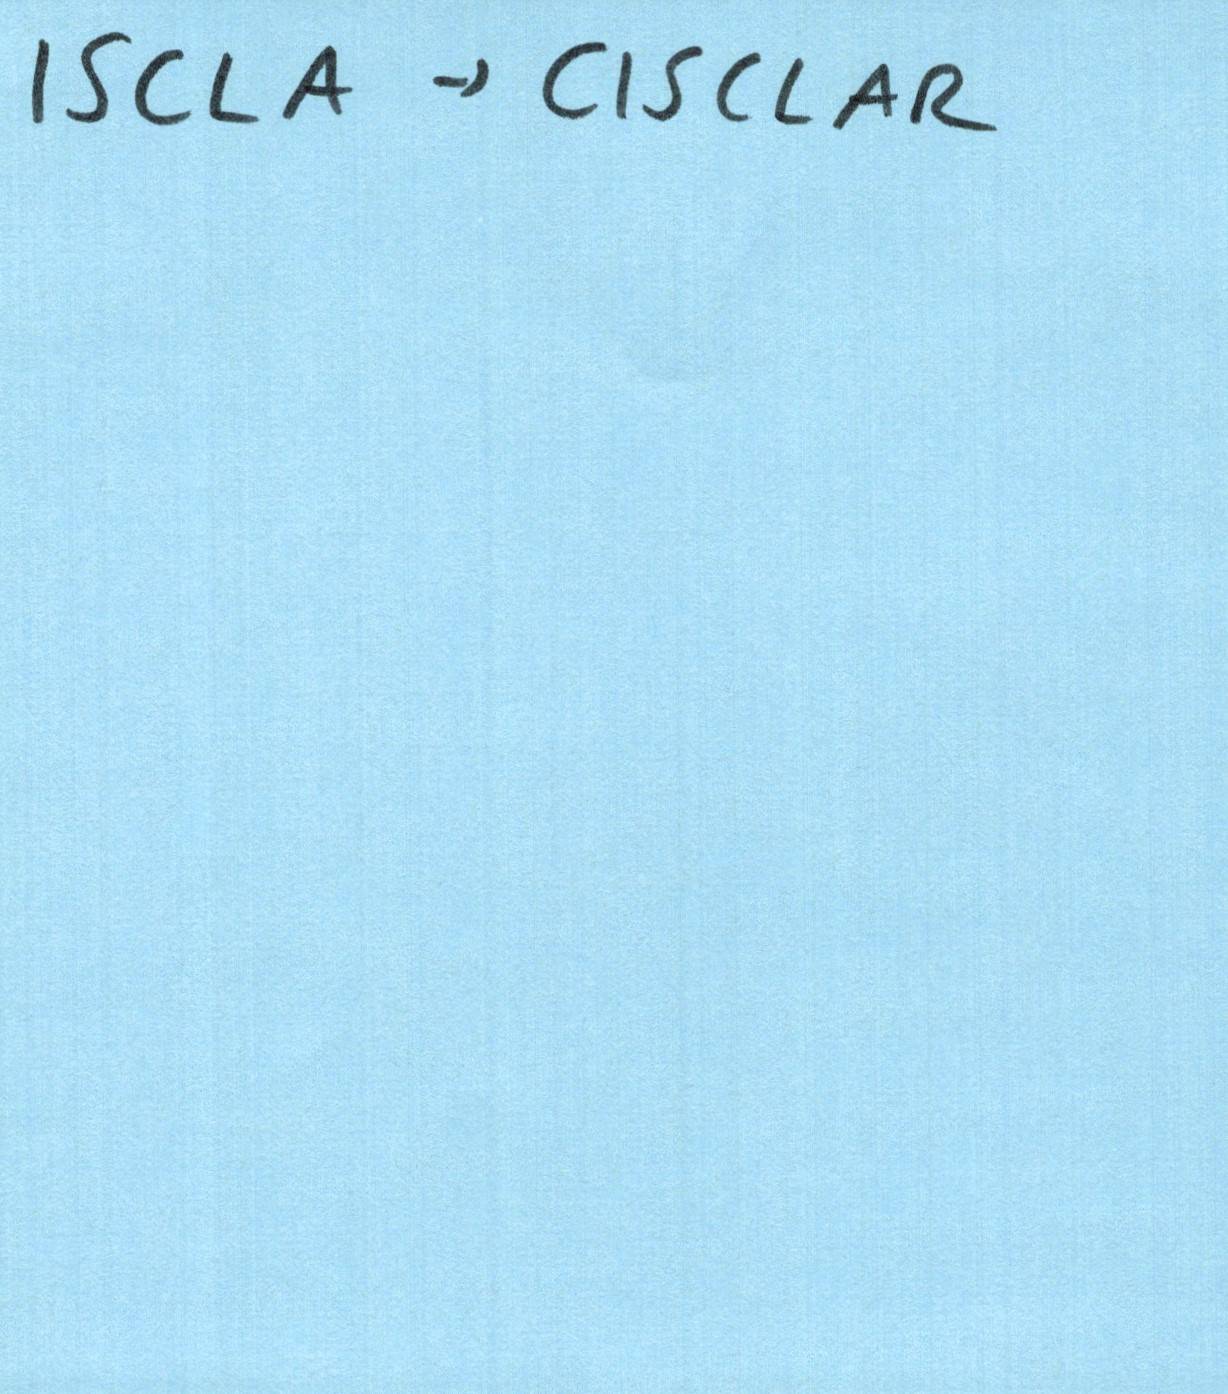 ISCLA → CISCLAR